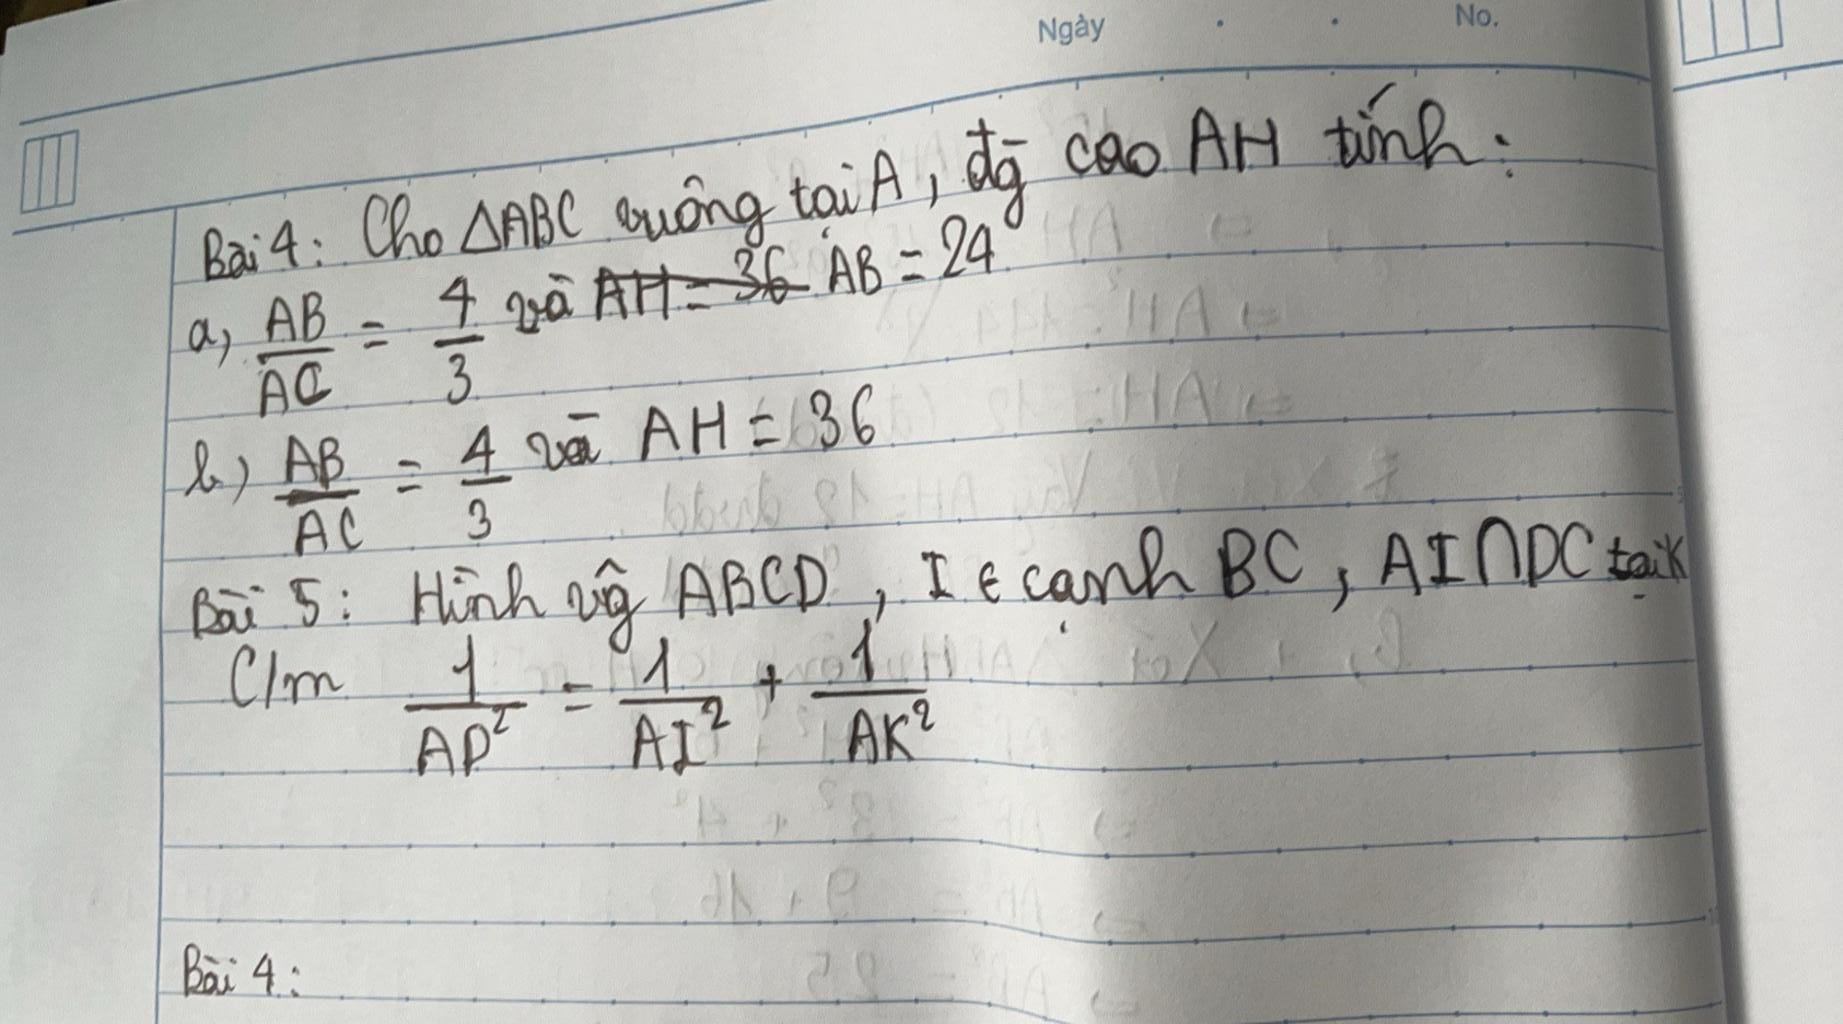 Ngày . . No.
Bài 4: Cho ΔABC vuông tại A, đg cao AH tính:
a, AB/AC = 4/3 và ~~AH = 36~~ AB = 24
b) AB/AC = 4/3 và AH = 36
Bài 5: Hình vg ABCD, I ∈ cạnh BC, AI∩DC tại K
C/m 1/AD² = 1/AI² + 1/AK²
Bài 4: